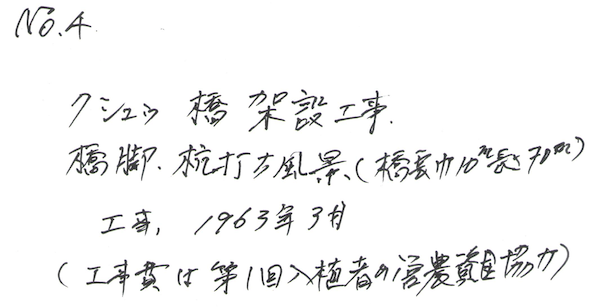 No.4
クシュウ橋架設工事.
橋脚.杭打古風景、(橋長巾10m長さ70m)
工事, 1963年3月
(工事費は第1回入植者の営農資金協力)